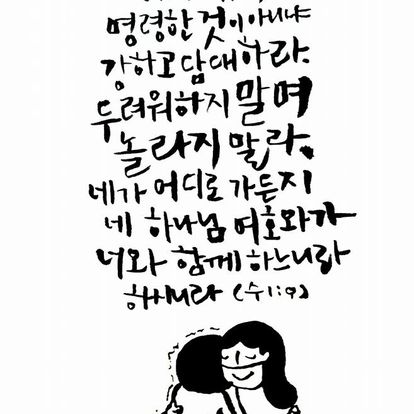 명령한 것이 아니냐
강하고 담대하라.
두려워하지 말며
놀라지 말라.
네가 어디로 가든지
네 하나님 여호와가
너와 함께 하느니라
하시니라 (수1:9)